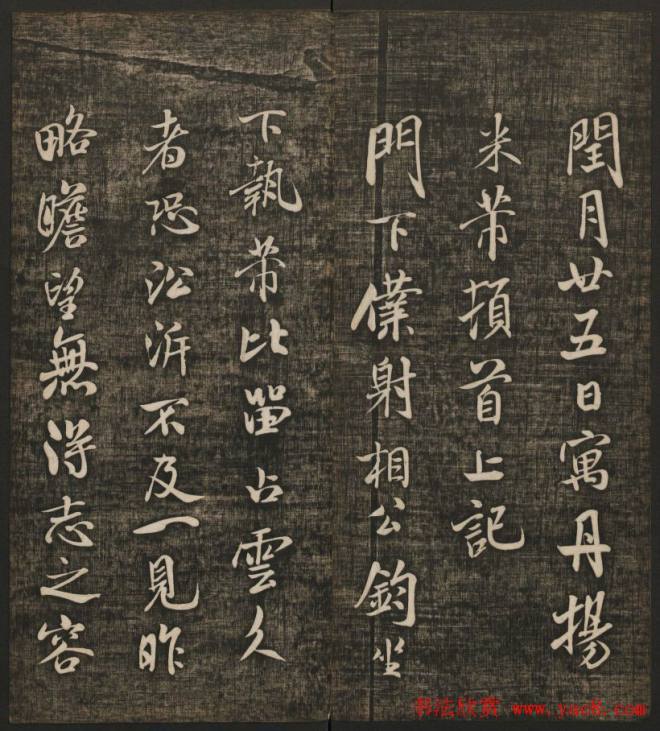 閏月廿五日寓丹揚
米芾頓首上記
門下僕射相公鈞坐
下執芾比留占雲久
者恐沿泝不及一見昨
略瞻望無淂志之容
书法欣赏 www.yac8.com